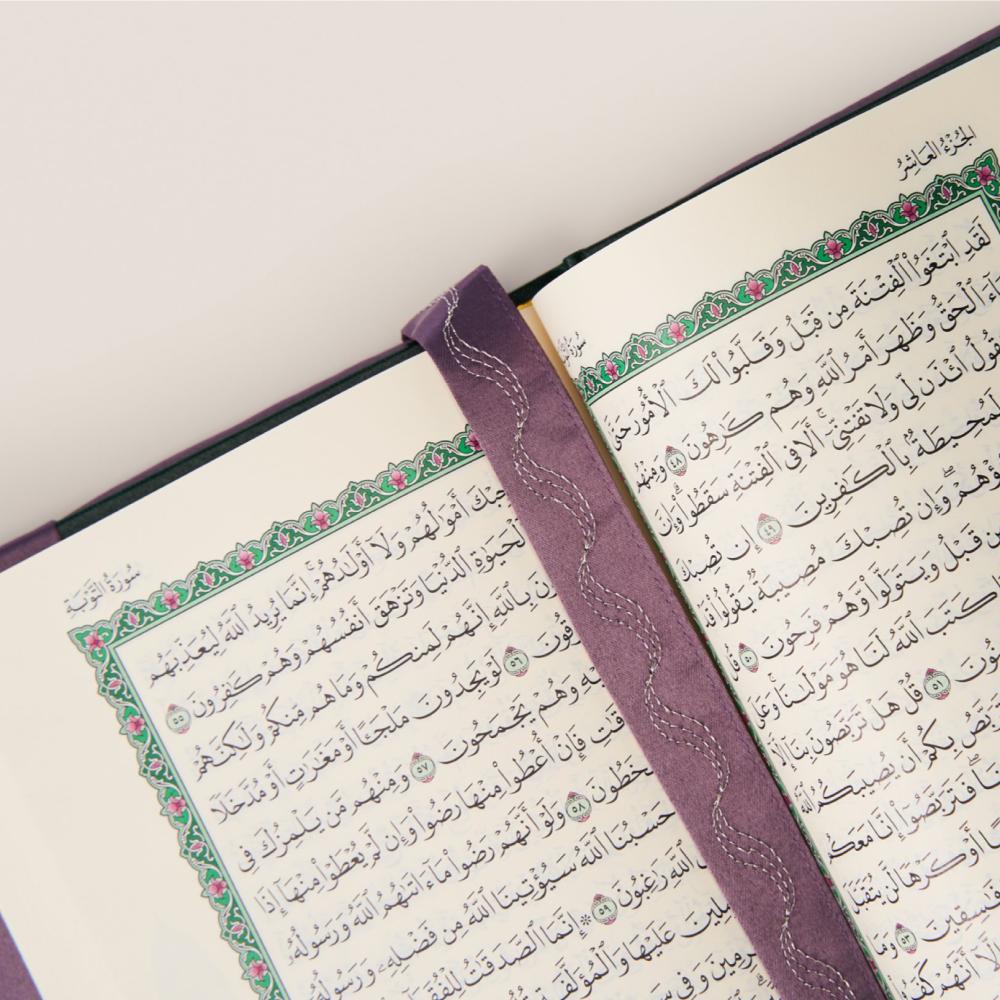 الجُزْءُ العَاشِرُ
لَقَدِ ٱبْتَغَوُا۟ ٱلْفِتْنَةَ مِن قَبْلُ وَقَلَّبُوا۟ لَكَ ٱلْأُمُورَ حَتَّىٰ
اءَ ٱلْحَقُّ وَظَهَرَ أَمْرُ ٱللَّهِ وَهُمْ كَٰرِهُونَ ٤٨ وَمِنْهُم
قُولُ ٱئْذَن لِّى وَلَا تَفْتِنِّىٓ أَلَا فِى ٱلْفِتْنَةِ سَقَطُوا۟ وَإِنَّ
لَمُحِيطَةٌۢ بِٱلْكَٰفِرِينَ ٤٩ إِن تُصِبْكَ
ؤْهُمْ وَإِن تُصِبْكَ مُصِيبَةٌ يَقُولُوا۟ قَدْ
مِن قَبْلُ وَيَتَوَلَّوا۟ وَّهُمْ فَرِحُونَ ٥٠ قُل
كَتَبَ ٱللَّهُ لَنَا هُوَ مَوْلَىٰنَا وَعَلَى
نُونَ ٥١ قُلْ هَلْ تَرَبَّصُونَ بِنَآ إِلَّآ
بَّصُ بِكُمْ أَن يُصِيبَكُمُ ٱللَّهُ
نَا فَتَرَبَّصُوٓا۟ إِنَّا مَعَكُم
أَوْ كَرْهًا لَّن يُتَقَبَّلَ
فَٰسِقِينَ ٥٣ وَمَا
إِلَّآ أَنَّهُمْ كَفَرُوا۟
سُورَةُ التَّوْبَةِ
جِبْكَ أَمْوَٰلُهُمْ وَلَآ أَوْلَٰدُهُمْ إِنَّمَا يُرِيدُ ٱللَّهُ لِيُعَذِّبَهُم
ٱلْحَيَوٰةِ ٱلدُّنْيَا وَتَزْهَقَ أَنفُسُهُمْ وَهُمْ كَٰفِرُونَ ٥٥
نَ بِٱللَّهِ إِنَّهُمْ لَمِنكُمْ وَمَا هُم مِّنكُمْ وَلَٰكِنَّهُمْ
قُونَ ٥٦ لَوْ يَجِدُونَ مَلْجَـًٔا أَوْ مَغَٰرَٰتٍ أَوْ مُدَّخَلًا
هِ وَهُمْ يَجْمَحُونَ ٥٧ وَمِنْهُم مَّن يَلْمِزُكَ فِى
قَٰتِ فَإِنْ أُعْطُوا۟ مِنْهَا رَضُوا۟ وَإِن لَّمْ يُعْطَوْا۟ مِنْهَآ إِذَا
خَطُونَ ٥٨ وَلَوْ أَنَّهُمْ رَضُوا۟ مَآ ءَاتَىٰهُمُ ٱللَّهُ وَرَسُولُهُۥ
حَسْبُنَا ٱللَّهُ سَيُؤْتِينَا ٱللَّهُ مِن فَضْلِهِۦ وَرَسُولُهُۥٓ
ٱللَّهِ رَٰغِبُونَ ٥٩ ۞ إِنَّمَا ٱلصَّدَقَٰتُ لِلْفُقَرَآءِ
مِلِينَ عَلَيْهَا وَٱلْمُؤَلَّفَةِ
رِمِينَ وَفِى